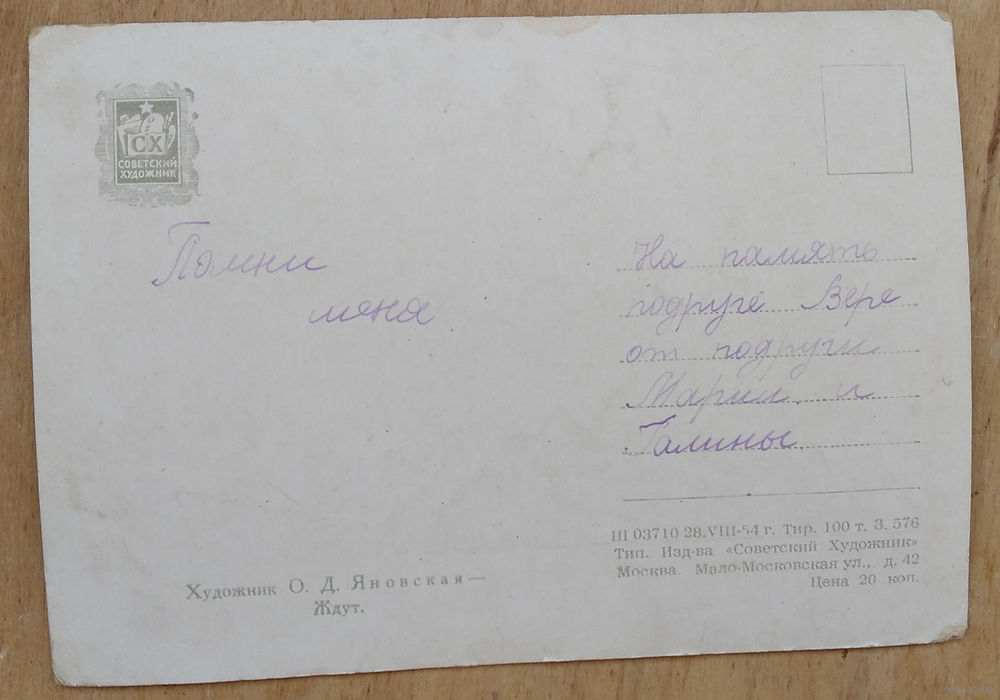 СХ
СОВЕТСКИЙ
ХУДОЖНИК
Помни
меня
На память
подруге Вере
от подруги
Марии и
Галины.
Художник О. Д. Яновская—
Ждут.
Ш 03710 28.VIII-54 г. Тир. 100 т. З. 576
Тип. Изд-ва «Советский Художник»
Москва. Мало-Московская ул., д. 42
Цена 20 коп.